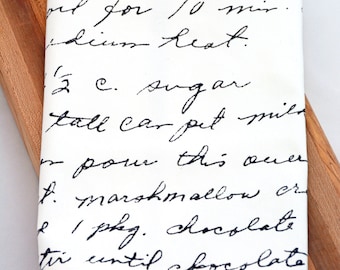 for 10 min.
dium heat.
1/2 c. sugar
tall can pet milk
pour this over
t. marshmallow cr
1 pkg. chocolate
tir until chocolate